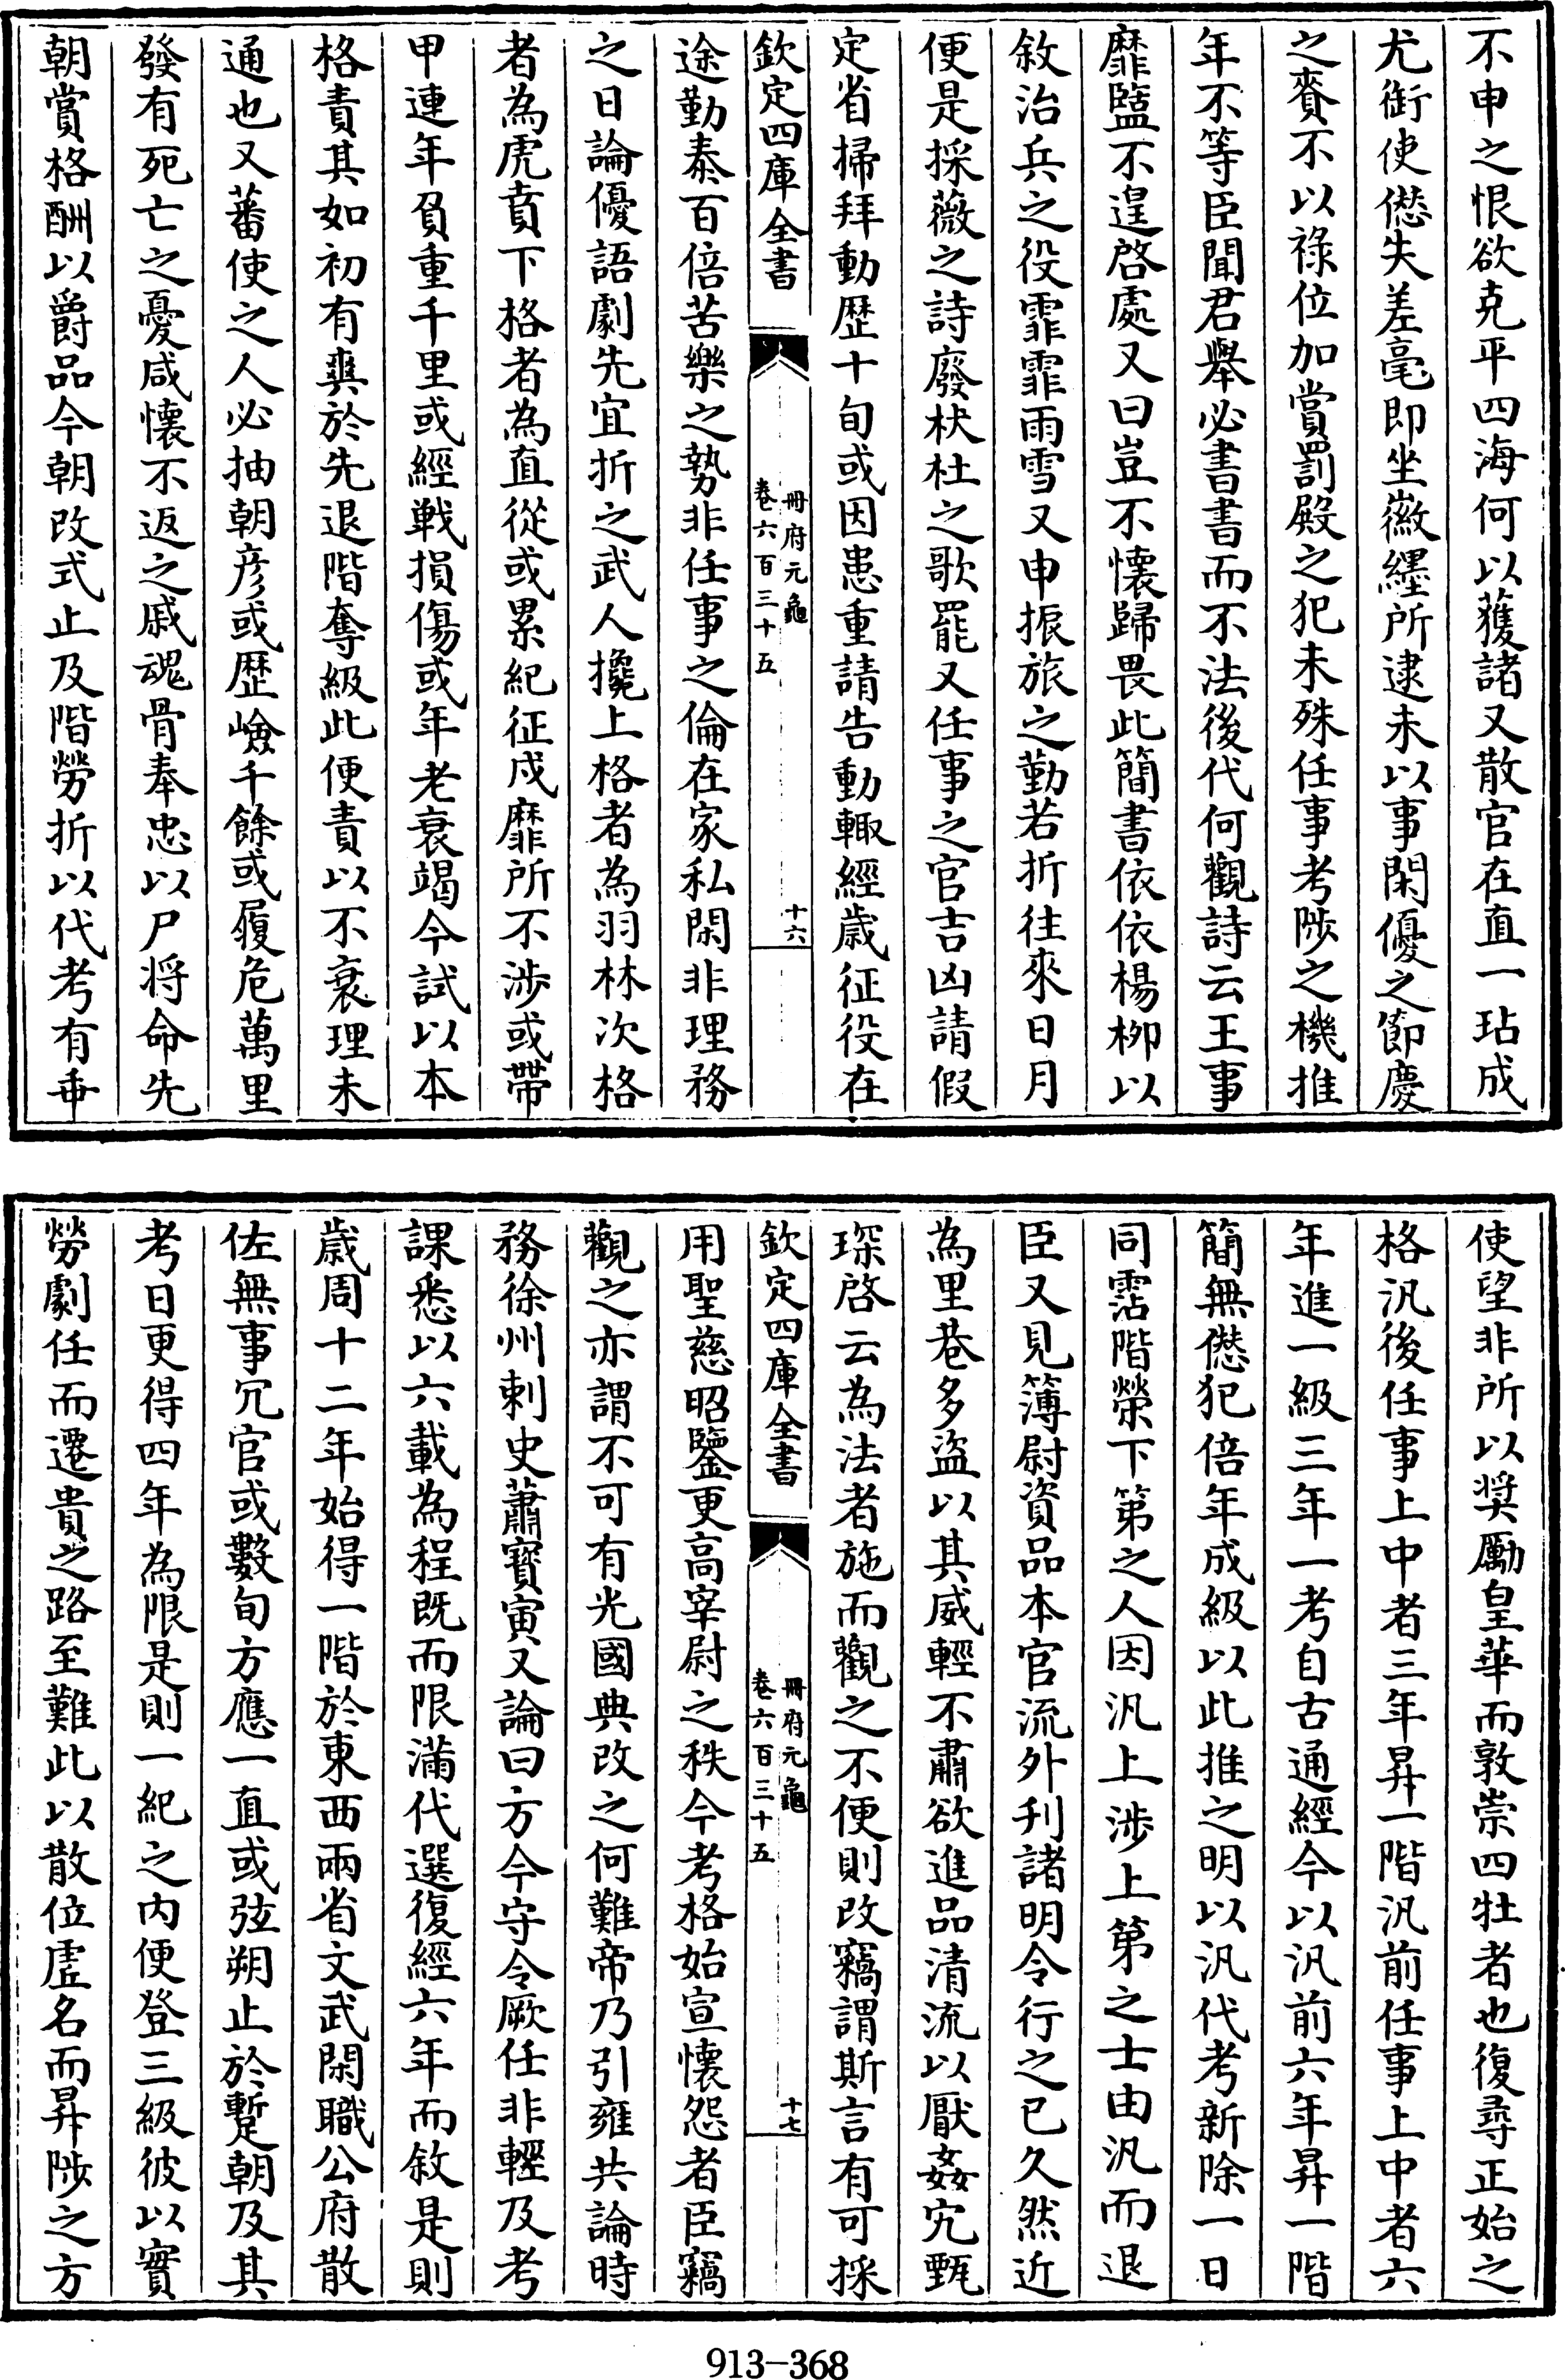 不申之恨欲克平四海何以獲諸又散官在直一玷成
尤銜使愆失差毫即坐徽纆所逮未以事閑優之節慶
之賚不以祿位加賞罰殿之犯未殊任事考陟之機推
年不等臣聞君舉必書書而不法後代何觀詩云王事
靡盬不遑啓處又曰豈不懷歸畏此簡書依依楊柳以
敘治兵之役霏霏雨雪又申振旅之勤若折往來日月
便是採薇之詩廢杕杜之歌罷又任事之官吉凶請假
定省掃拜動歷十旬或因患重請告動輙經歲征役在
欽定四庫全書
冊府元龜
卷六百三十五
十六
途勤泰百倍苦樂之勢非任事之倫在家私閑非理務
之日論優語劇先宜折之武人攙上格者為羽林次格
者為虎賁下格者為直從或累紀征戍靡所不涉或帶
甲連年負重千里或經戰損傷或年老衰竭今試以本
格責其如初有爽於先退階奪級此便責以不衰理未
通也又蕃使之人必抽朝彦或歷嶮千餘或履危萬里
發有死亡之憂咸懷不返之戚魂骨奉忠以尸将命先
朝賞格酬以爵品今朝改式止及階勞折以代考有乖
使望非所以奨勵皇華而敦崇四牡者也復尋正始之
格汎後任事上中者三年昇一階汎前任事上中者六
年進一級三年一考自古通經今以汎前六年昇一階
簡無愆犯倍年成級以此推之明以汎代考新除一日
同霑階榮下第之人因汎上涉上第之士由汎而退
臣又見簿尉資品本官流外刋諸明令行之已久然近
為里巷多盜以其威輕不肅欲進品清流以厭姦宄甄
琛啓云為法者施而觀之不便則改竊謂斯言有可採
欽定四庫全書
冊府元龜
卷六百三十五
十七
用聖慈昭鑒更高宰尉之秩今考格始宣懷怨者臣竊
觀之亦謂不可有光國典改之何難帝乃引雍共論時
務徐州刺史蕭寳寅又論曰方今守令厥任非輕及考
課悉以六載為程既而限滿代還復經六年而敘是則
歲周十二年始得一階於東西兩省文武閑職公府散
佐無事冗官或數旬方應一直或弦朔止於蹔朝及其
考日更得四年為限是則一紀之内便登三級彼以實
勞劇任而遷貴之路至難此以散位虚名而昇陟之方
913-368